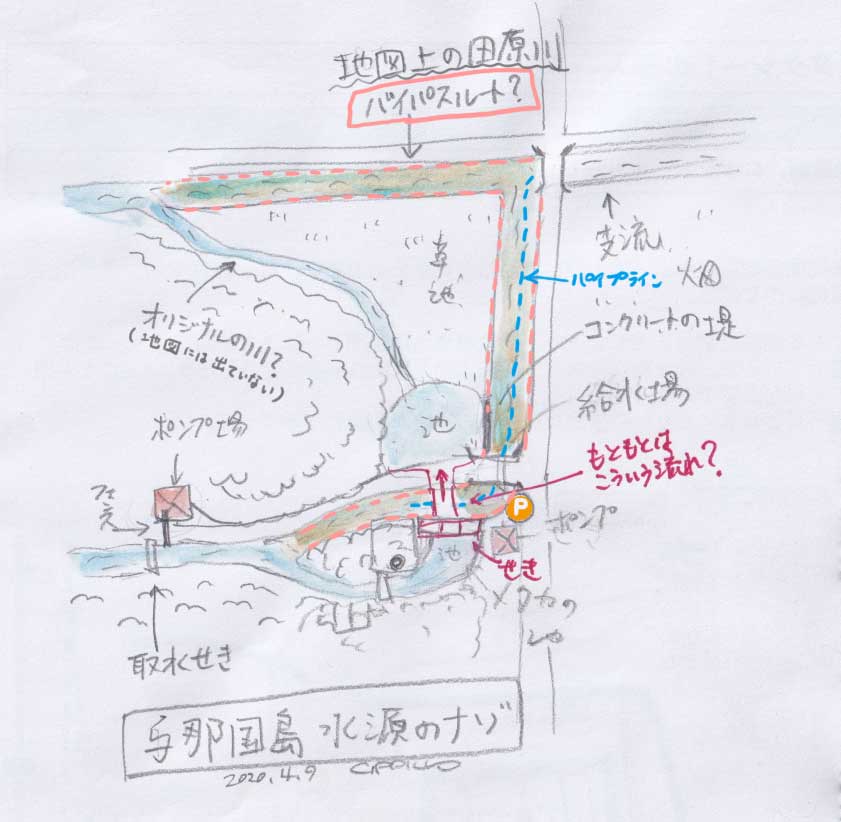 地図上の田原川
バイパスルート?
支流
草地
パイプライン
畑
オリジナルの川?
(地図には出ていない)
コンクリートの堤
ポンプ場
池
給水場
もともとは
こういう流れ?
P
ポンプ
池
せき
メダカの
池
取水せき
与那国島 水源のナゾ
2020.4.9